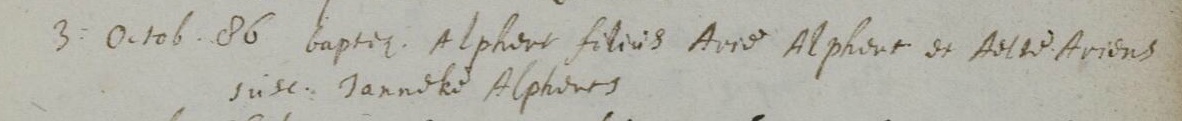 3: Octob. 86 baptiz. Alphert filius Arie Alphert et Aeltie Ariens
susc: Janneke Alpherts